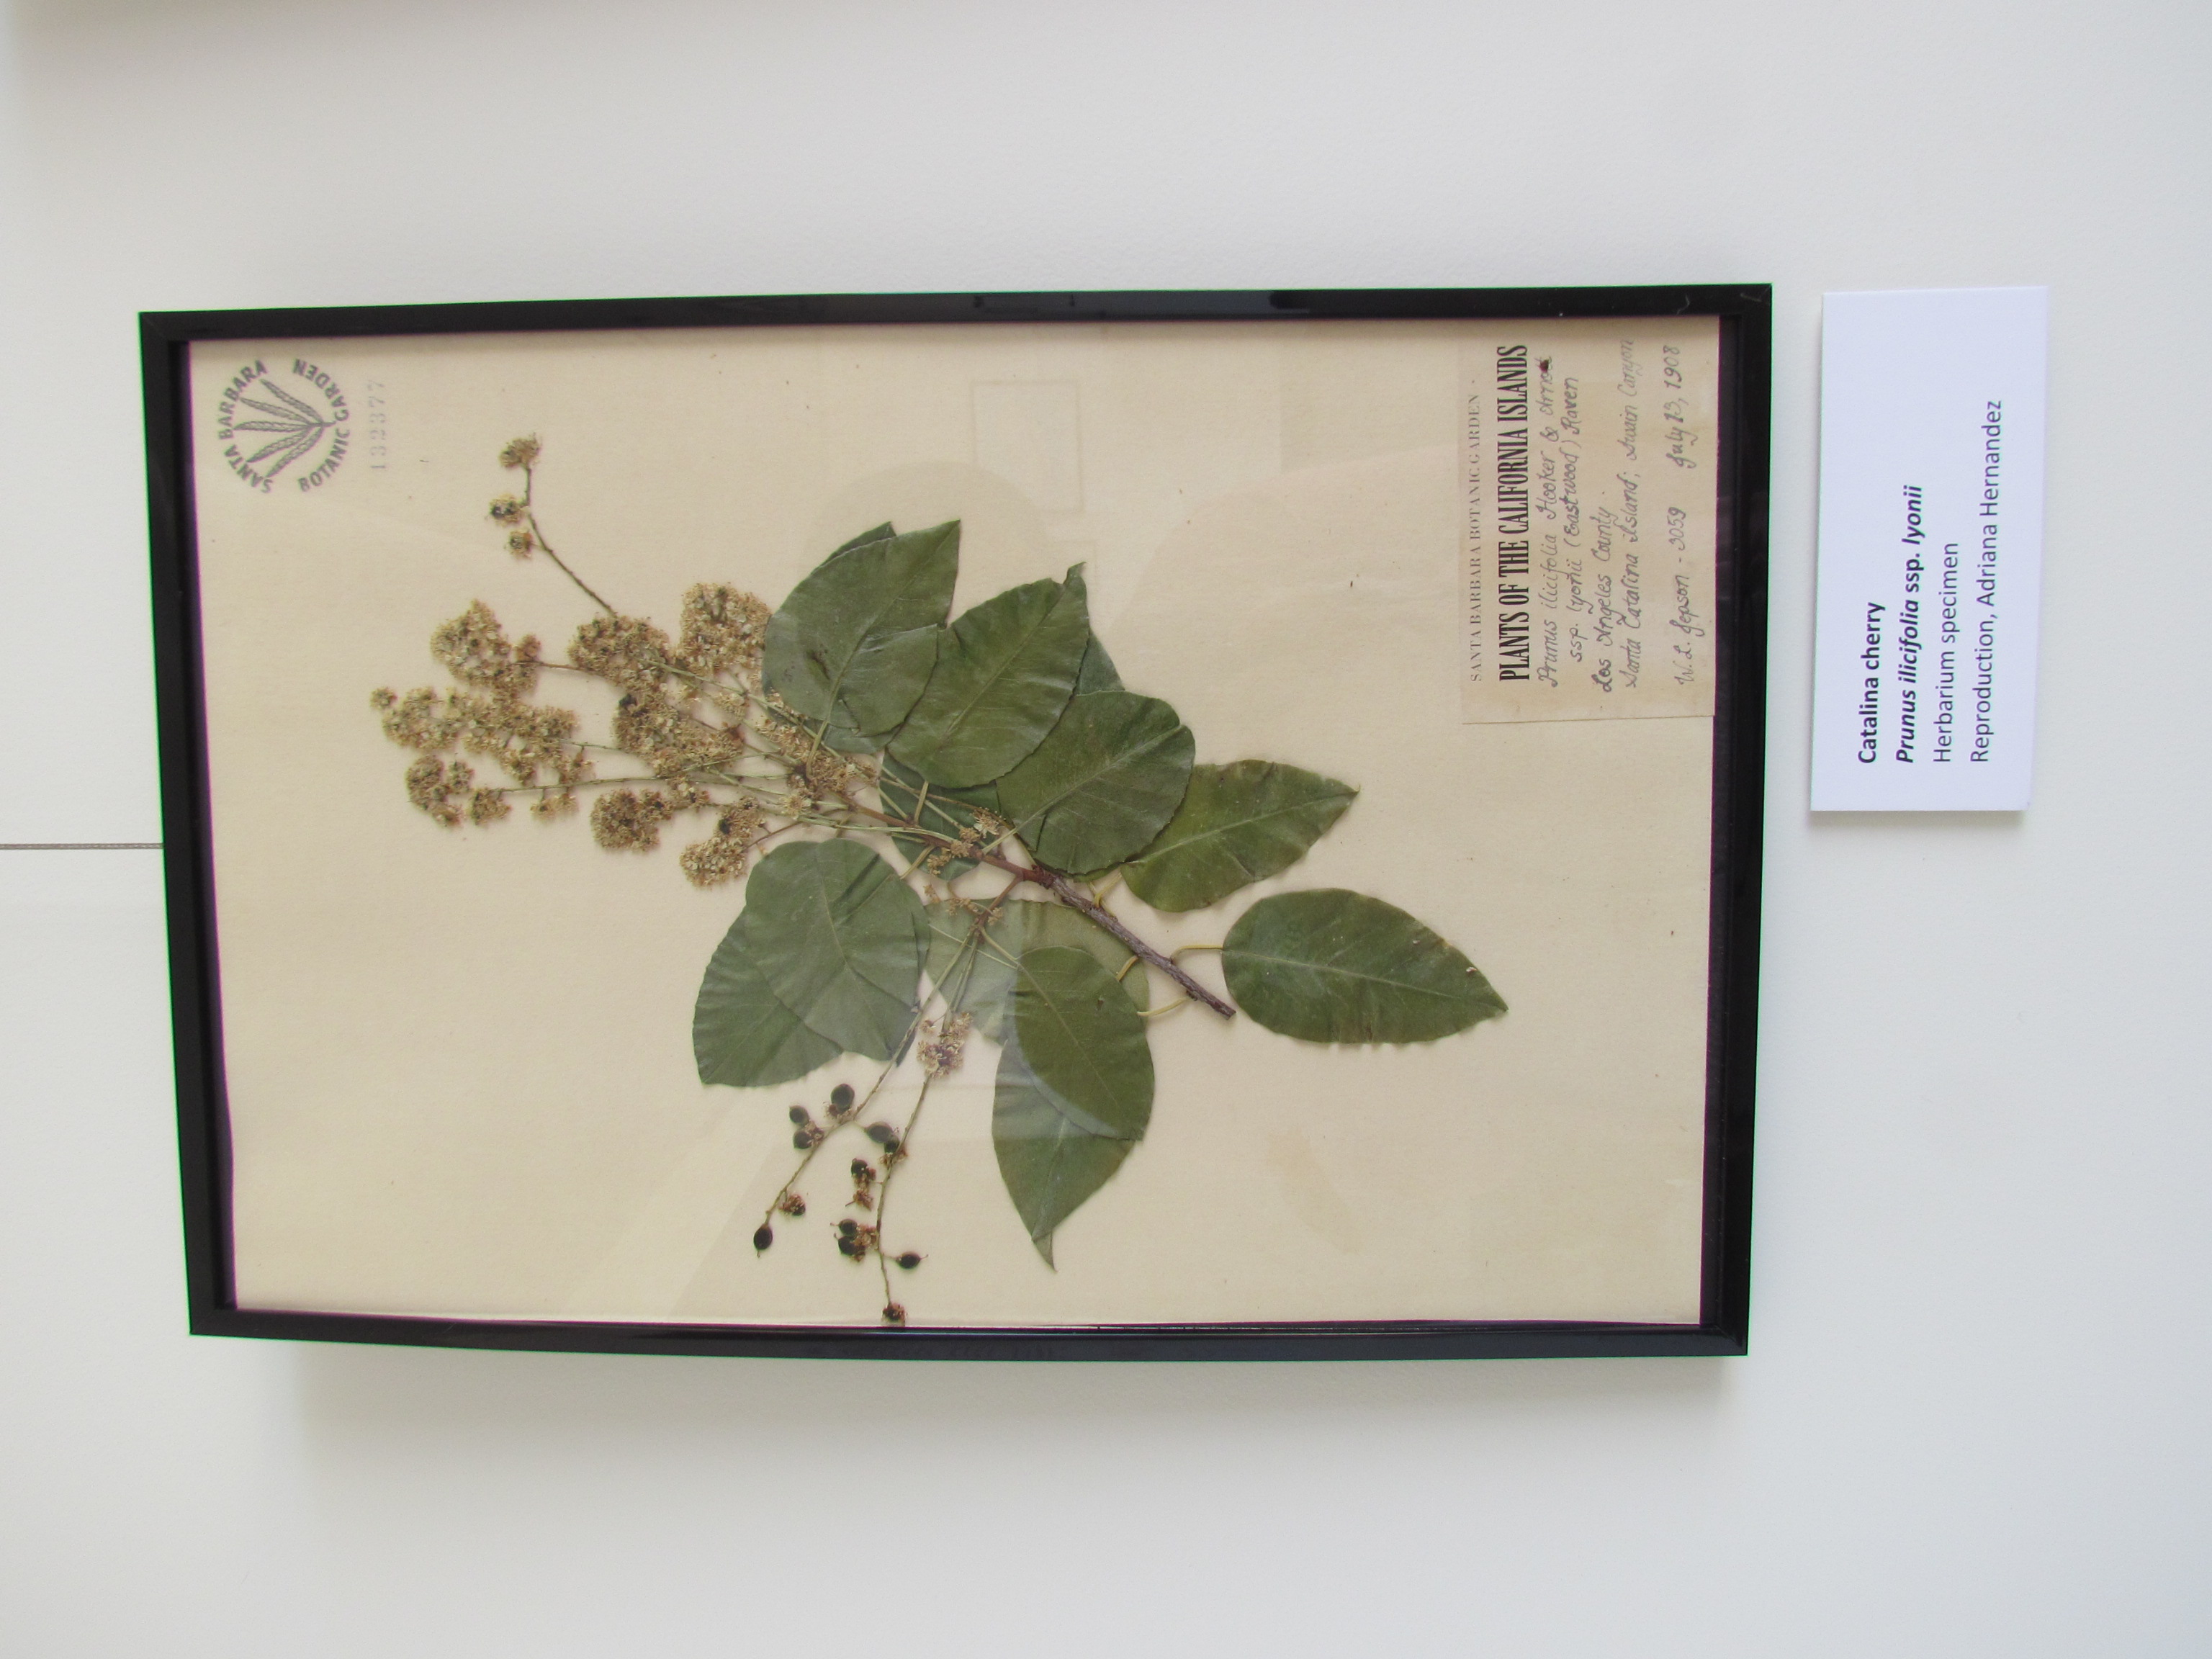 SANTA BARBARA
BOTANIC GARDEN
132377
SANTA BARBARA BOTANIC GARDEN
PLANTS OF THE CALIFORNIA ISLANDS
Prunus ilicifolia Hooker & Arnott
ssp. lyonii (Eastwood) Raven
Los Angeles County
Santa Catalina Island; Swain Canyon
W. L. Jepson - 3059 July 13, 1908
Catalina cherry
Prunus ilicifolia ssp. lyonii
Herbarium specimen
Reproduction, Adriana Hernandez